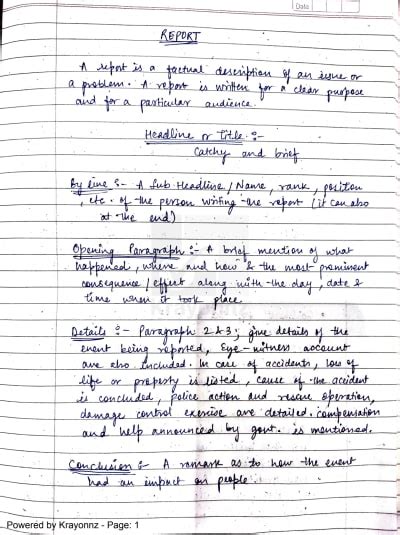 Date
REPORT
A report is a factual description of an issue or
a problem. A report is written for a clear purpose
and for a particular audience.
Headline or Title :-
Catchy and brief
By line :- A Sub-Headline / Name, rank, position
, etc. of the person writing the report (it can also
at the end)
Opening Paragraph :- A brief mention of what
happened, where and how & the most prominent
consequence / effect along with the day, date &
time when it took place
Details :- Paragraph 2 & 3; give details of the
event being reported, Eye-witness account
are also included. In case of accidents, loss of
life or property is listed, cause of the accident
is concluded, police action and rescue operation,
damage control exercise are detailed. compensation
and help announced by govt. is mentioned.
Conclusion :- A remark as to how the event
had an impact on people.
Powered by Krayonnz - Page: 1